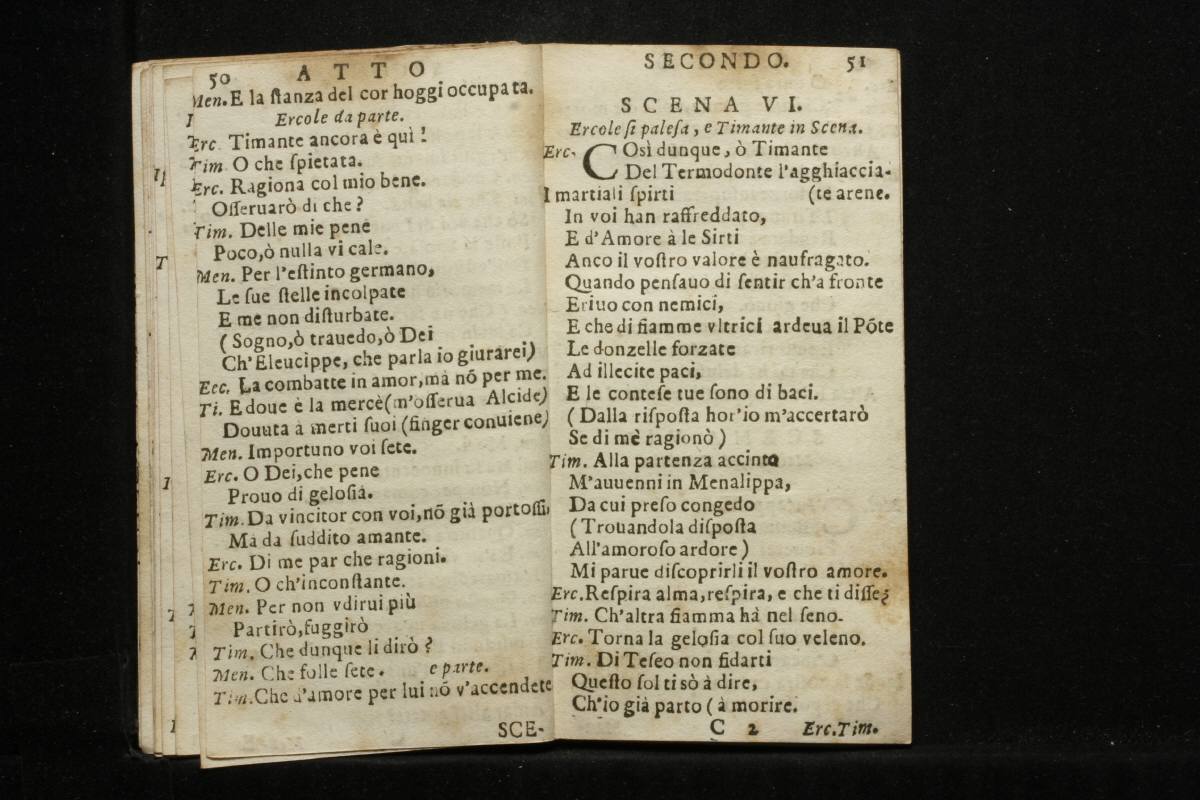 50 ATTO
Men. E la ſtanza del cor hoggi occupata.
Ercole da parte.
Erc. Timante ancora è quì!
Tim. O che ſpietata.
Erc. Ragiona col mio bene.
Oſſeruarò di che?
Tim. Delle mie pene
Poco, ò nulla vi cale.
Men. Per l'eſtinto germano,
Le ſue ſtelle incolpate
E me non diſturbate.
( Sogno, ò trauedo, ò Dei
Ch'Eleucippe, che parla io giurarei)
Eec. La combatte in amor, mà nõ per me.
Ti. E doue è la mercè (m'oſſerua Alcide)
Douuta à merti ſuoi (finger conuiene)
Men. Importuno voi ſete.
Erc. O Dei, che pene
Prouo di geloſia.
Tim. Da vincitor con voi, nõ già portoſſi,
Mà da ſuddito amante.
Erc. Di me par che ragioni.
Tim. O ch'inconſtante.
Men. Per non vdirui più
Partirò, fuggirò
Tim. Che dunque li dirò?
Men. Che folle ſete. e parte.
Tim. Che d'amore per lui nõ v'accendete
SCE-
SECONDO. 51
SCENA VI.
Ercole ſi paleſa, e Timante in Scena.
Erc. COsì dunque, ò Timante
Del Termodonte l'agghiaccia-
I martiali ſpirti (te arene.
In voi han raffreddato,
E d'Amore à le Sirti
Anco il voſtro valore è naufragato.
Quando penſauo di ſentir ch'a fronte
Eriuo con nemici,
E che di fiamme vltrici ardeua il Põte
Le donzelle forzate
Ad illecite paci,
E le conteſe tue ſono di baci.
( Dalla riſpoſta hor'io m'accertarò
Se di mè ragionò )
Tim. Alla partenza accinto
M'auuenni in Menalippa,
Da cui preſo congedo
( Trouandola diſpoſta
All'amoroſo ardore )
Mi parue diſcoprirli il voſtro amore.
Erc. Reſpira alma, reſpira, e che ti diſſe?
Tim. Ch'altra fiamma hà nel ſeno.
Erc. Torna la geloſia col ſuo veleno.
Tim. Di Teſeo non fidarti
Queſto ſol ti sò à dire,
Ch'io già parto ( à morire.
C 2 Erc. Tim.